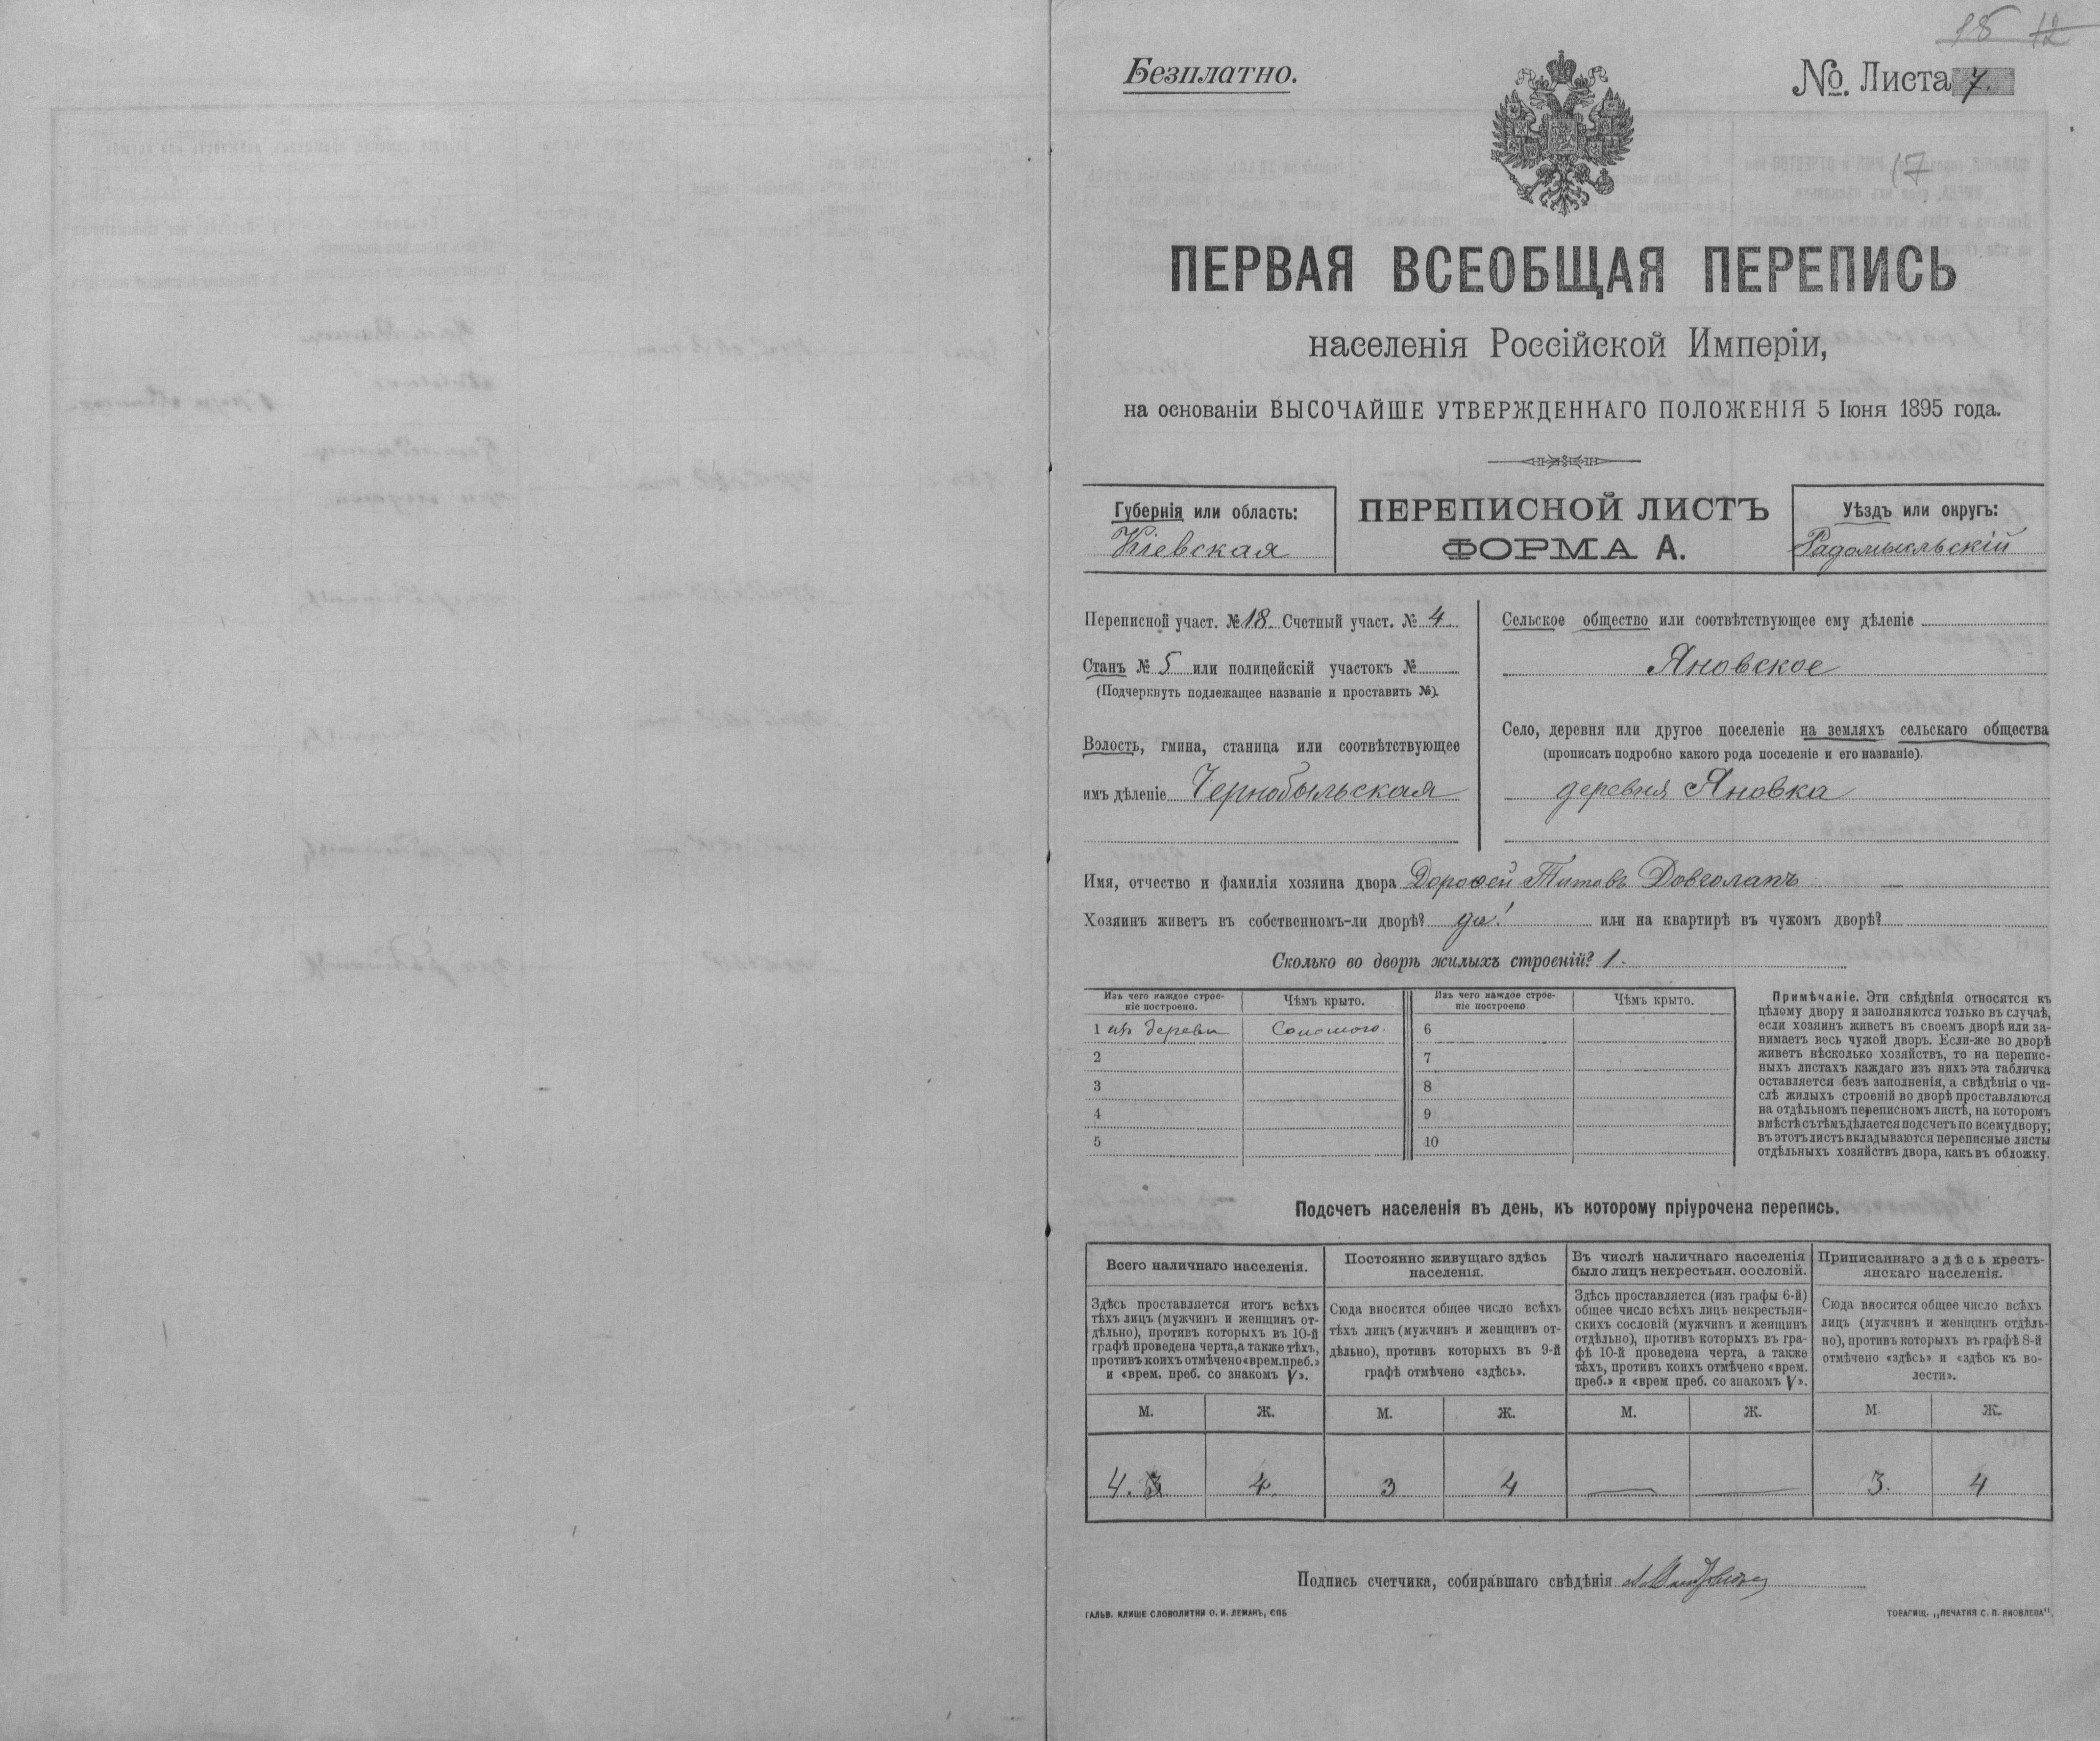 18 12
Безплатно.
№. Листа 7.
17
ПЕРВАЯ ВСЕОБЩАЯ ПЕРЕПИСЬ
населенія Россійской Имперіи,
на основаніи ВЫСОЧАЙШЕ УТВЕРЖДЕННАГО ПОЛОЖЕНІЯ 5 Іюня 1895 года.
Губернія или область:
Кіевская
ПЕРЕПИСНОЙ ЛИСТЪ
ФОРМА А.
Уѣздъ или округъ:
Радомысльскій
Переписной участ. № 18. Счетный участ. № 4
Станъ № 5 или полицейскій участокъ №
(Подчеркнуть подлежащее названіе и проставить №).
Волость, гмина, станица или соотвѣтствующее
имъ дѣленіе Чернобыльская
Сельское общество или соотвѣтствующее ему дѣленіе
Яновское
Село, деревня или другое поселеніе на земляхъ сельскаго общества
(прописать подробно какого рода поселеніе и его названіе).
деревня Яновка
Имя, отчество и фамилія хозяина двора Дорофей Титовъ Довголапъ
Хозяинъ живетъ въ собственномъ-ли дворѣ? да! или на квартирѣ въ чужомъ дворѣ?
Сколько во дворѣ жилыхъ строеній? 1.
Изъ чего каждое строе-
ніе построено.
Чѣмъ крыто.
Изъ чего каждое строе-
ніе построено.
Чѣмъ крыто.
1 изъ дерева Соломою. 6
2 7
3 8
4 9
5 10
Примѣчаніе. Эти свѣдѣнія относятся къ
цѣлому двору и заполняются только въ случаѣ,
если хозяинъ живетъ въ своемъ дворѣ или за-
нимаетъ весь чужой дворъ. Если-же во дворѣ
живетъ нѣсколько хозяйствъ, то на перепис-
ныхъ листахъ каждаго изъ нихъ эта табличка
оставляется безъ заполненія, а свѣдѣнія о чи-
слѣ жилыхъ строеній во дворѣ проставляются
на отдѣльномъ переписномъ листѣ, на которомъ
вмѣстѣ съ тѣмъ дѣлается подсчетъ по всему двору;
въ этотъ листъ вкладываются переписные листы
отдѣльныхъ хозяйствъ двора, какъ въ обложку.
Подсчетъ населенія въ день, къ которому пріурочена перепись.
Всего наличнаго населенія.
Здѣсь проставляется итогъ всѣхъ
тѣхъ лицъ (мужчинъ и женщинъ от-
дѣльно), противъ которыхъ въ 10-й
графѣ проведена черта, а также тѣхъ,
противъ коихъ отмѣчено «врем. преб.»
и «врем. преб. со знакомъ V».
Постоянно живущаго здѣсь
населенія.
Сюда вносится общее число всѣхъ
тѣхъ лицъ (мужчинъ и женщинъ от-
дѣльно), противъ которыхъ въ 9-й
графѣ отмѣчено «здѣсь».
Въ числѣ наличнаго населенія
было лицъ некрестьян. сословій.
Здѣсь проставляется (изъ графы 6-й)
общее число всѣхъ лицъ некрестьян-
скихъ сословій (мужчинъ и женщинъ
отдѣльно), противъ которыхъ въ гра-
фѣ 10-й проведена черта, а также
тѣхъ, противъ коихъ отмѣчено «врем.
преб.» и «врем преб. со знакомъ V».
Приписаннаго здѣсь кресть-
янскаго населенія.
Сюда вносится общее число всѣхъ
лицъ (мужчинъ и женщинъ отдѣль-
но), противъ которыхъ въ графѣ 8-й
отмѣчено «здѣсь» и «здѣсь къ во-
лости».
М. Ж. М. Ж. М. Ж. М. Ж.
4. 3 4. 3 4 — — 3. 4
Подпись счетчика, собиравшаго свѣдѣнія
ГАЛЬВ. КЛИШЕ СЛОВОЛИТНИ О. И. ЛЕМАНЪ, СПБ
ТОВАРИЩ. „ПЕЧАТНЯ С. П. ЯКОВЛЕВА".